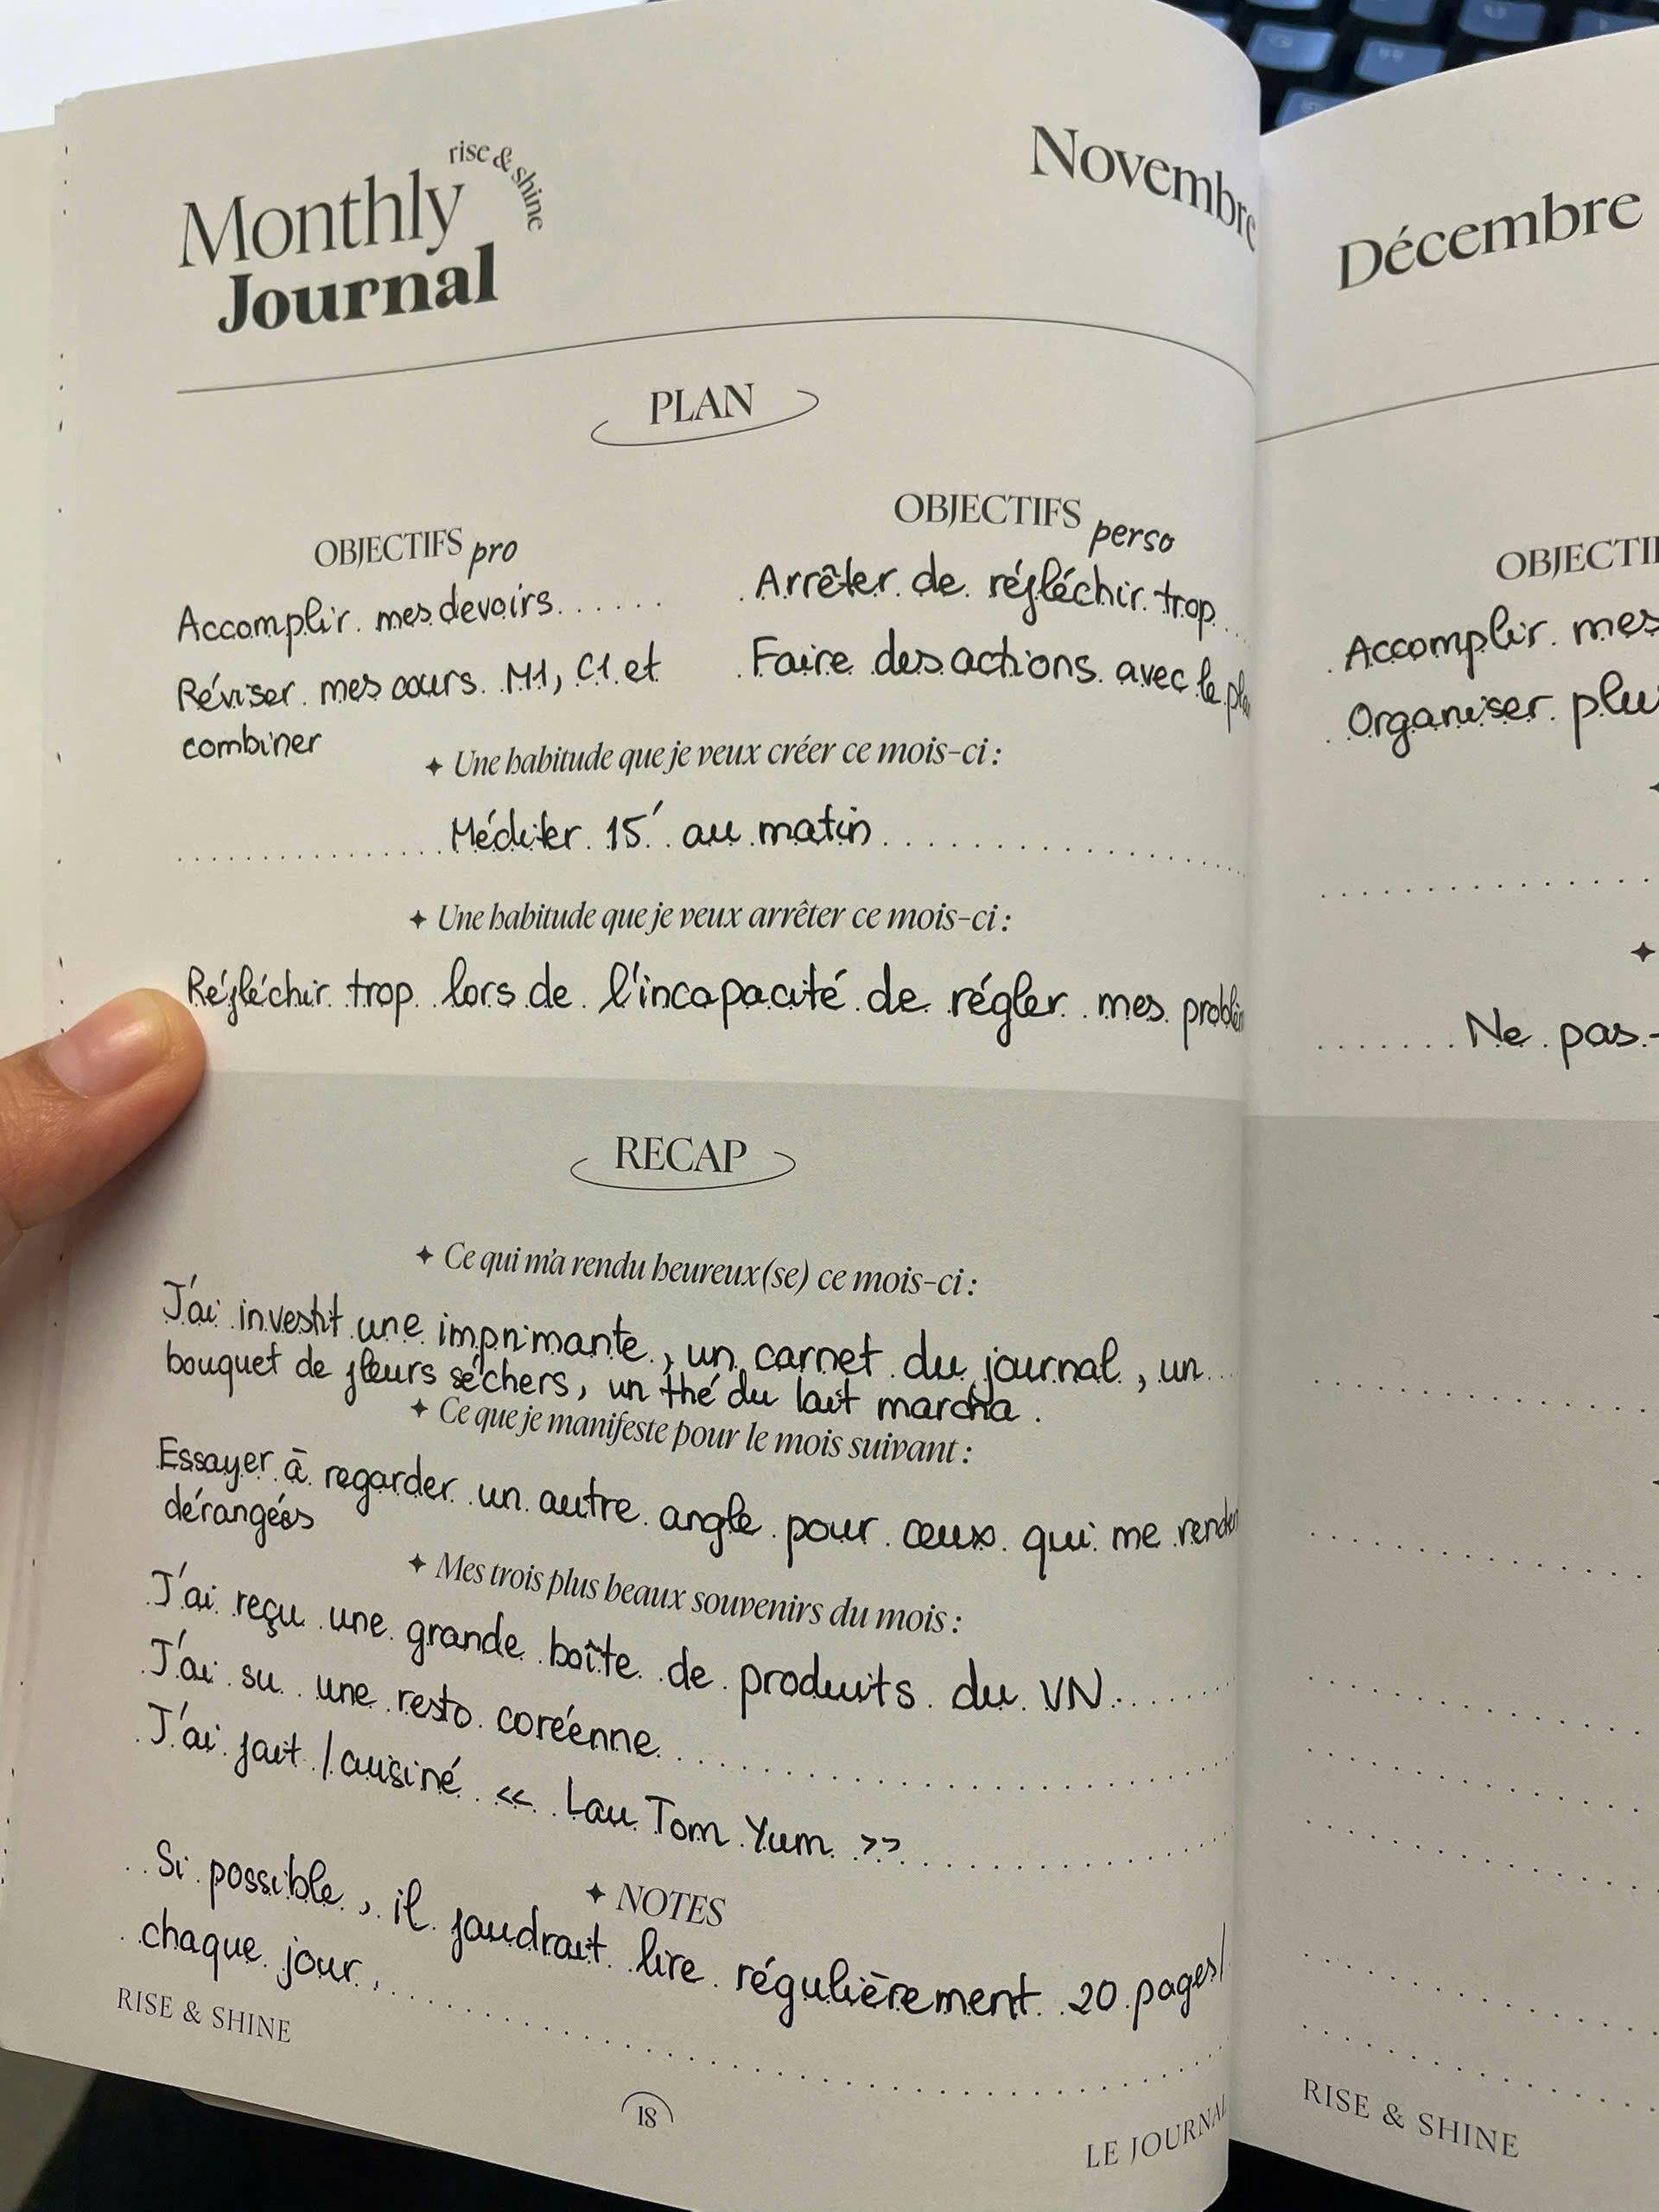 rise & shine
Monthly
Journal
Novembre
PLAN
OBJECTIFS pro
Accomplir mes devoirs
Réviser mes cours M1, C1 et
combiner
OBJECTIFS perso
Arrêter de réfléchir trop
Faire des actions avec le
✦ Une habitude que je veux créer ce mois-ci :
Méditer 15' au matin
✦ Une habitude que je veux arrêter ce mois-ci :
Réfléchir trop lors de l'incapacité de régler mes
RECAP
✦ Ce qui m'a rendu heureux(se) ce mois-ci :
J'ai investit une imprimante, un carnet du journal, un
bouquet de fleurs séchers, un thé du lait marcha.
✦ Ce que je manifeste pour le mois suivant :
Essayer à regarder un autre angle pour ceux qui me
dérangées
✦ Mes trois plus beaux souvenirs du mois :
J'ai reçu une grande boîte de produits du VN.
J'ai su une resto coréenne
J'ai fait / cuisiné << Lau Tom Yum >>
✦ NOTES
Si possible, il faudrait lire régulièrement 20 pages/
chaque jour.
RISE & SHINE
18
LE JOURNAL
Décembre
OBJECTI
Accomplir mes
Organiser plu
Ne pas
RISE & SHINE